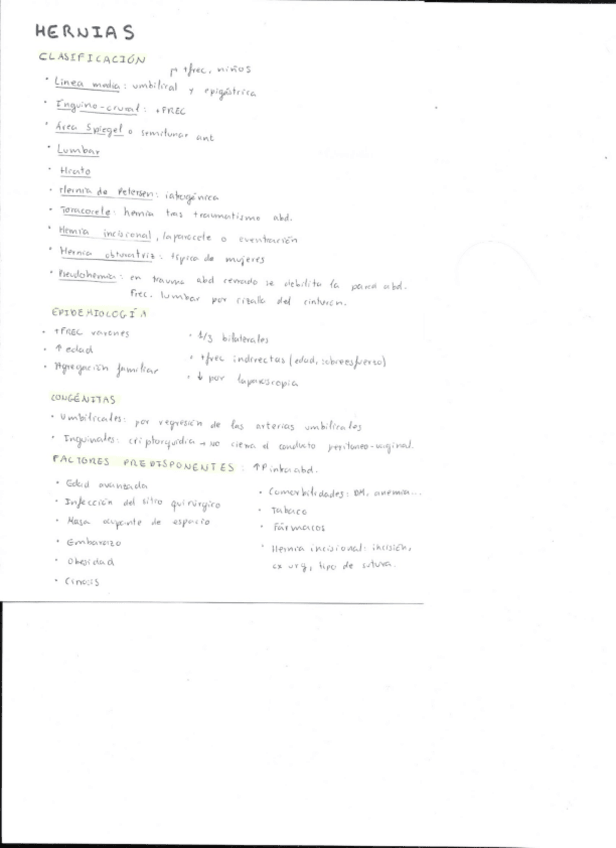 HERNIAS
CLASIFICACIÓN
↱ +frec. niños
· Línea media: umbilical y epigástrica
· Inguino-crural: +FREC
· Área Spiegel o semilunar ant
· Lumbar
· Hiato
· Hernia de Petersen: iatrogénica
· Tomcorete: hernia tras traumatismo abd.
· Hernia incisional, laparocele o eventración
· Hernia obturatriz: típica de mujeres
· Pseudohernia: en trauma abd cerrado se debilita la pared abd.
Frec. lumbar por cizalla del cinturón.
EPIDEMIOLOGÍA
· +FREC varones
· ↑ edad
· Agregación familiar
· 1/3 bilaterales
· +frec indirectas (edad, sobreesfuerzo)
· ↓ por laparoscopia
CONGÉNITAS
· Umbilicales: por regresión de las arterias umbilicales
· Inguinales: criptorquidia → no cierra el conducto peritoneo-vaginal.
FACTORES PREDISPONENTES: ↑P intraabd.
· Edad avanzada
· Infección del sitio quirúrgico
· Masa ocupante de espacio
· Embarazo
· Obesidad
· Cirrosis
· Comorbilidades: DM, anemia...
· Tabaco
· Fármacos
· Hernia incisional: incisión,
cx urg, tipo de sutura.